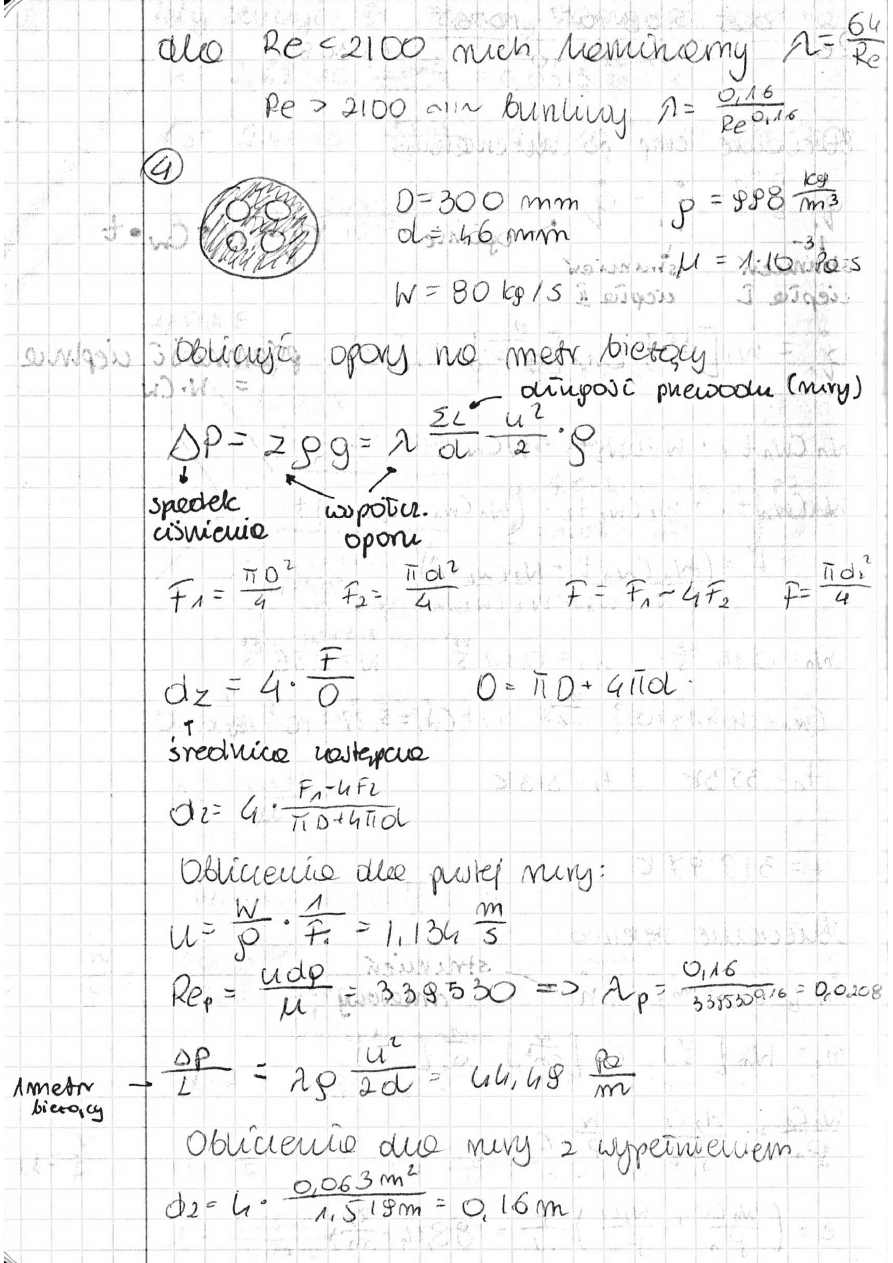 dla Re < 2100 ruch laminarny λ = 64/Re
Re > 2100 —"— burzliwy λ = 0,16/Re^0,16
④
D = 300 mm ρ = 998 kg/m³
d = 46 mm μ = 1·10⁻³ Pa s
W = 80 kg/s
Obliczyć opory na metr bieżący
długość przewodu (rury)
ΔP = z ρ g = λ ΣL/d u²/2 · ρ
spadek ciśnienia
współcz. oporu
F₁ = πD²/4 F₂ = πd²/4 F = F₁ - 4F₂ F = πd₂²/4
dz = 4 · F/O O = πD + 4πd
średnica zastępcza
dz = 4 · F₁-4F₂/πD+4πd
Obliczenia dla pustej rury:
u = W/ρ · 1/F₁ = 1,134 m/s
Reₚ = udρ/μ = 339530 => λₚ = 0,16/339530^0,16 = 0,0208
1 metr bieżący
ΔP/L = λρ u²/2d = 44,49 Pa/m
Obliczenia dla rury z wypełnieniem
dz = 4 · 0,063 m²/1,519m = 0,16m